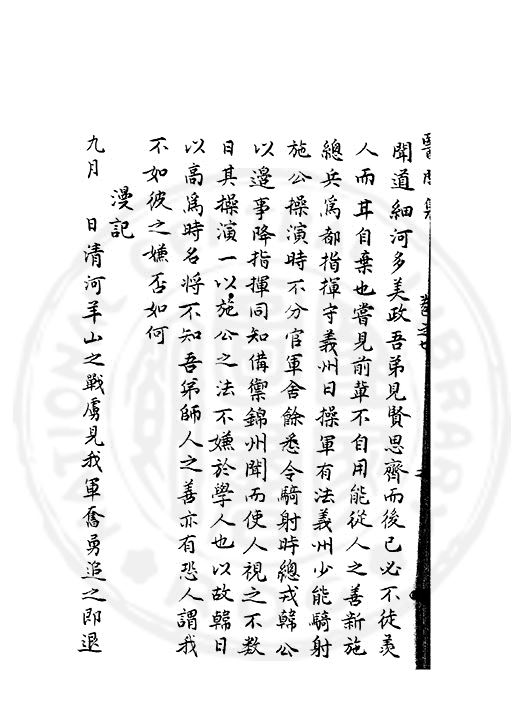 醫閭集
聞道細河多美政吾弟見賢思齊而後已必不徒羨
人而耳自棄也嘗見前軰不自用能從人之善新施
總兵爲都指揮守義州日操軍有法義州少能騎射
施公操演時不分官軍舍餘悉令騎射時總戎韓公
以邊事降指揮同知備禦錦州聞而使人視之不数
日其操演一以施公之法不嫌於學人也以故韓日
以高爲時名將不知吾弟師人之善亦有恐人謂我
不如彼之嫌否如何
漫記
九月 日清河羊山之戰虜見我軍奮勇追之即退